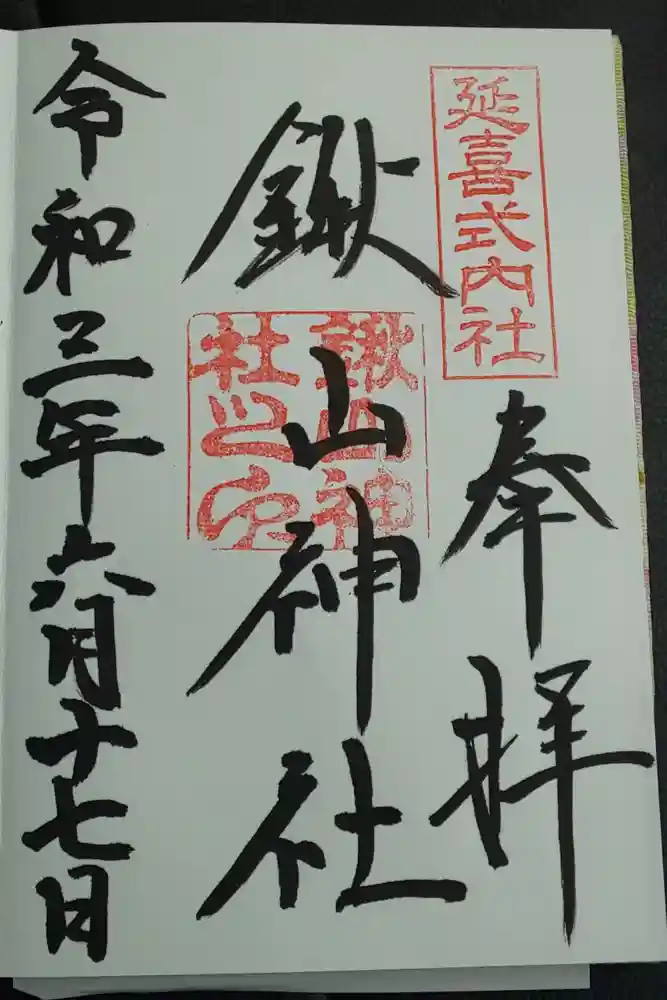 延喜式内社
奉拝
鍬山神社
鍬山神
社之印
令和三年六月十七日